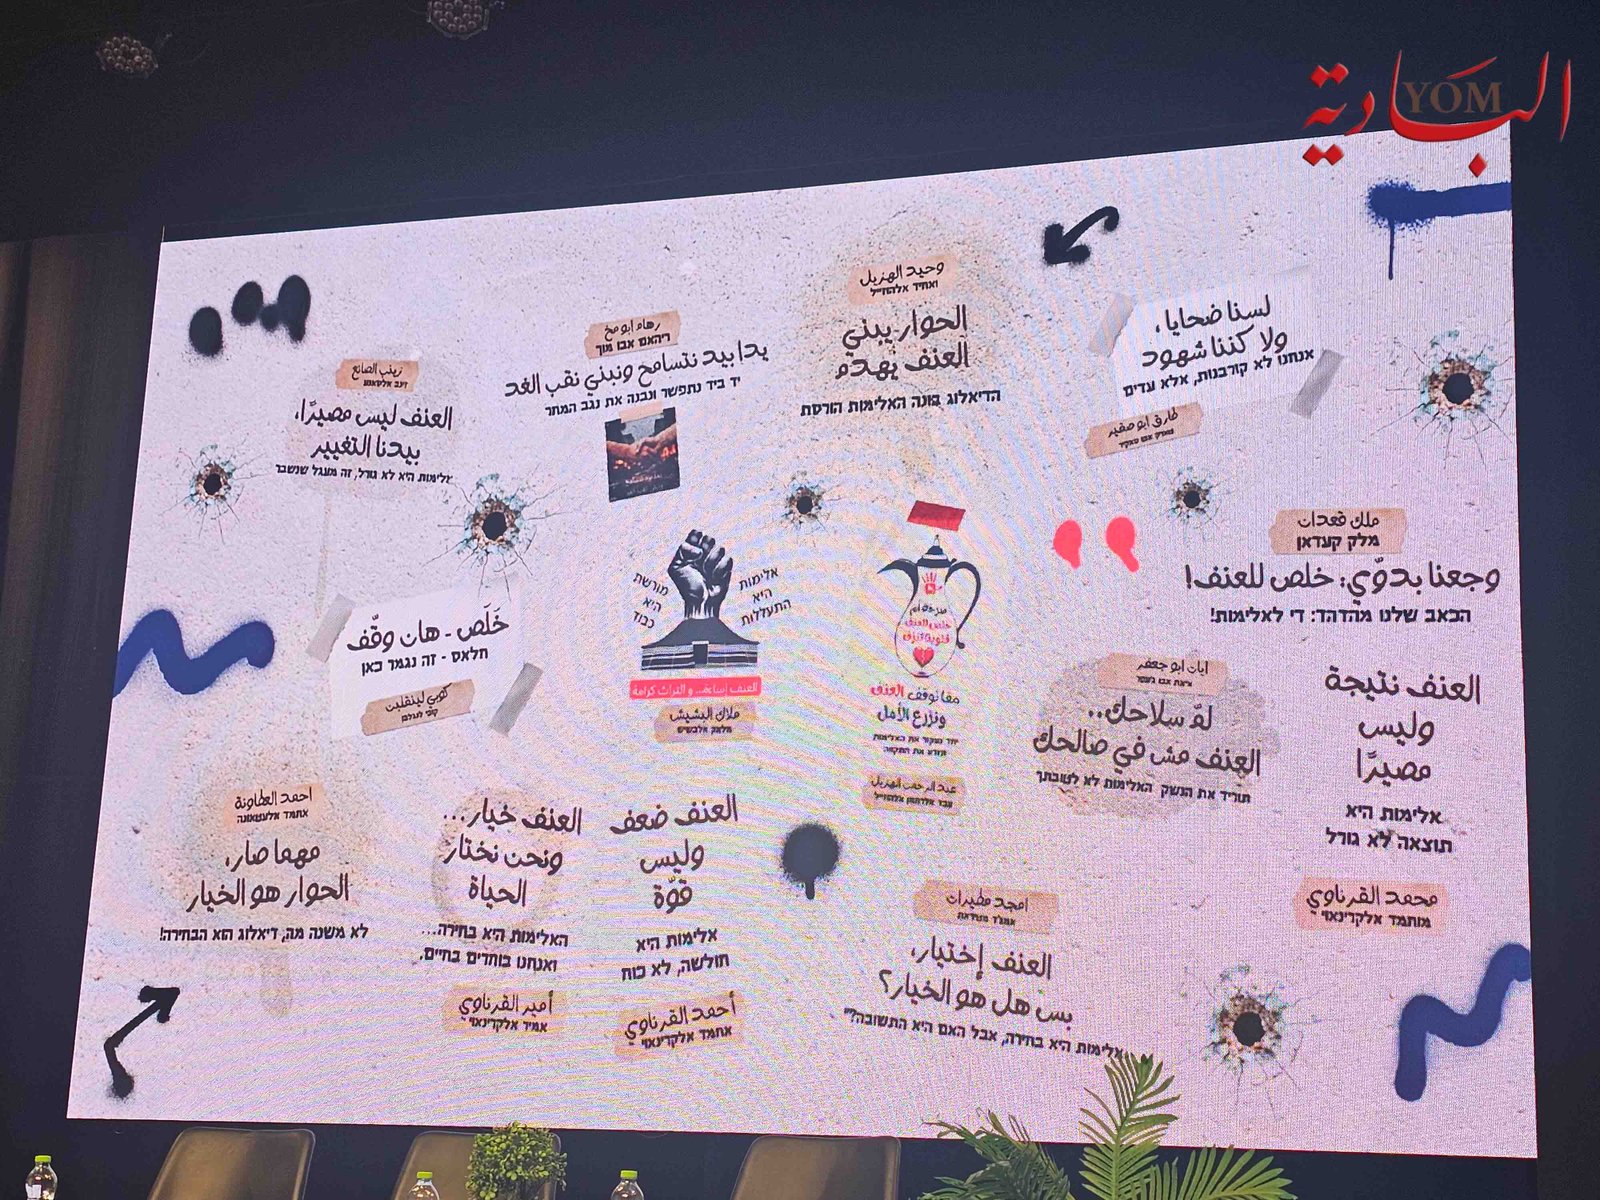 البادية
YOM
وحيد الهزيل
ואחיד אלהוזייל
الحوار يبني
العنف يهدم
הדיאלוג בונה האלימות הורסת
لسنا ضحايا،
ولا كننا شهود
אנחנו לא קורבנות, אלא עדים
طارق ابو صقير
رهام ابو مخ
ריהאם אבו מוך
يدا بيد نتسامح ونبني نقب الغد
יד ביד נתפשר ונבנה את נגב המחר
زينب الصانع
זינב אלסאנע
العنف ليس مصيرًا،
بيدنا التغيير
אלימות היא לא גורל, זה מעגל שנשבר
ملك قعدان
מלק קעדאן
وجعنا بدوّي: خلص للعنف!
הכאב שלנו מהדהד: די לאלימות!
خَلَص - هان وقّف
חלאס - זה נגמר כאן
كوبي لينقلبن
אלימות
היא
התעללות
מורשת
היא
כבוד
للعنف إساءة... و التراث كرامة
ملاك البشيش
מלאק אלבשיש
خلص للعنف
معًا نوقف العنف
ونزرع الأمل
عبد الرحمن الهزيل
עבד אלרחמן אלהוזייל
ايات ابو جعفر
איאת אבו ג'עפר
لمّ سلاحك..
العنف مش في صالحك
תוריד את הנשק האלימות לא לטובתך
العنف نتيجة
وليس
مصيرًا
אלימות היא
תוצאה לא גורל
محمد القرناوي
מוחמד אלקרינאוי
احمد العطاونة
אחמד אלעטאונה
مهما صار،
الحوار هو الخيار
לא משנה מה, דיאלוג הוא הבחירה!
العنف خيار...
ونحن نختار
الحياة
האלימות היא בחירה...
ואנחנו בוחרים בחיים.
أمير القرناوي
אמיר אלקרינאוי
العنف ضعف
وليس
قوّة
אלימות היא
חולשה, לא כוח
أحمد القرناوي
אחמד אלקרינאוי
امجد مطيرات
العنف إختيار،
بس هل هو الخيار؟
אלימות היא בחירה, אבל האם היא התשובה?"